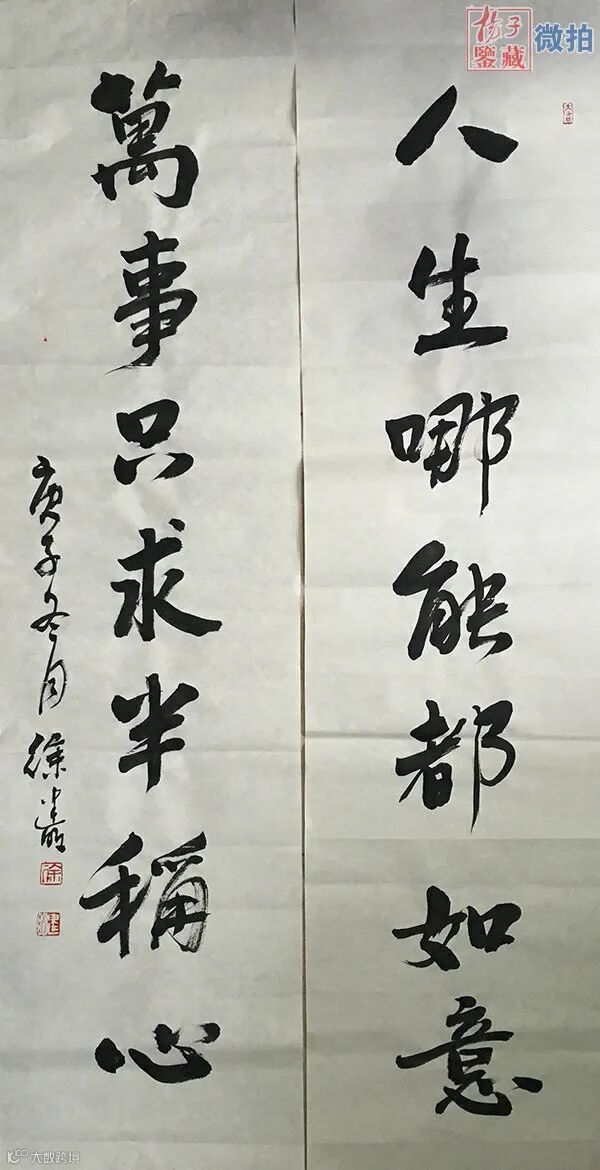 人生哪能都如意
萬事只求半稱心
庚子冬月徐
楊子鑒藏
微拍
大数跨境